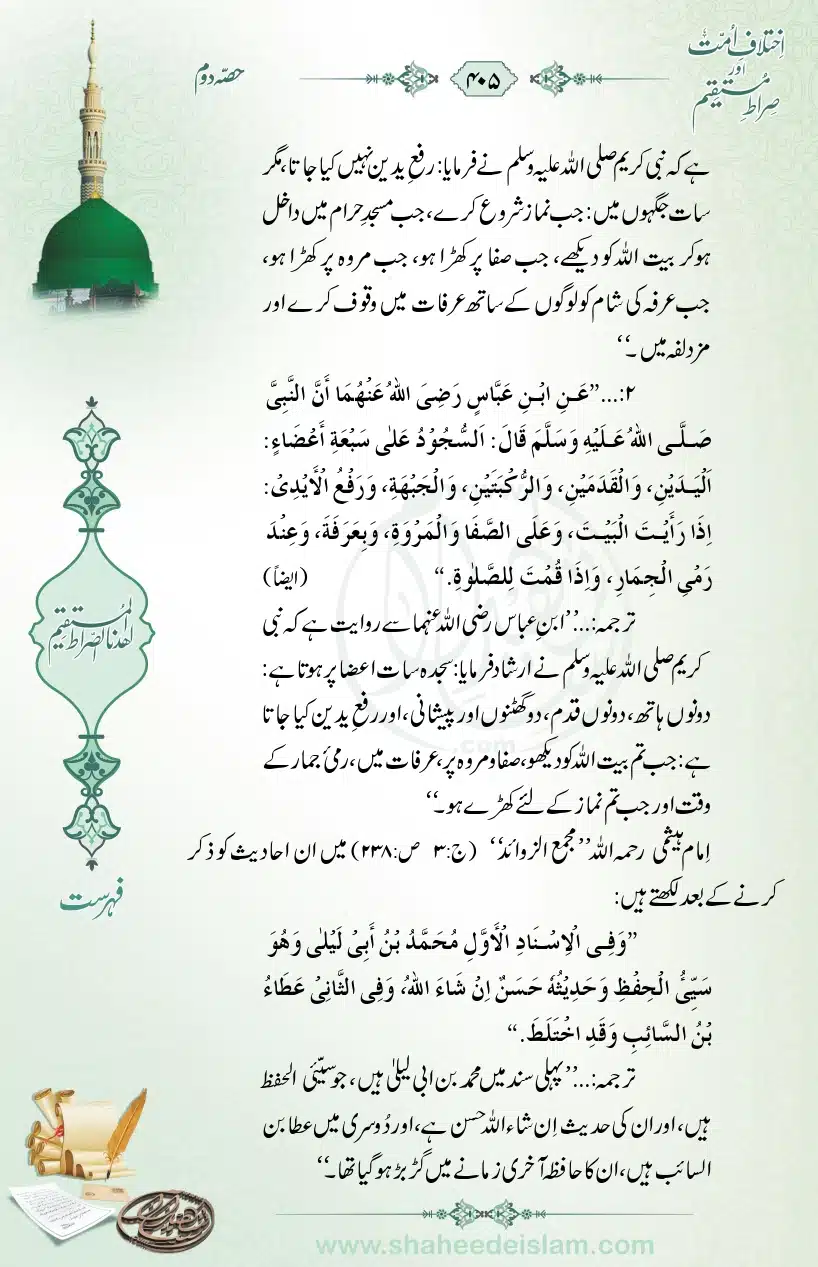 اِختلافِ اُمّت
اور
صِراطِ مُستقیم
۴۰۵
حصّہ دوم
ہے کہ نبی کریم صلی اللہ علیہ وسلم نے فرمایا: رفعِ یدین نہیں کیا جاتا، مگر
سات جگہوں میں: جب نماز شروع کرے، جب مسجدِ حرام میں داخل
ہوکر بیت اللہ کو دیکھے، جب صفا پر کھڑا ہو، جب مروہ پر کھڑا ہو،
جب عرفہ کی شام کو لوگوں کے ساتھ عرفات میں وقوف کرے اور
مزدلفہ میں۔‘‘
۲:...’’عَنِ ابْنِ عَبَّاسٍ رَضِیَ اللہُ عَنْھُمَا أَنَّ النَّبِیَّ
صَلَّی اللہُ عَلَیْہِ وَسَلَّمَ قَالَ: اَلسُّجُوْدُ عَلٰی سَبْعَۃِ أَعْضَاءٍ:
اَلْیَدَیْنِ، وَالْقَدَمَیْنِ، وَالرُّکْبَتَیْنِ، وَالْجَبْھَۃِ، وَرَفْعُ الْأَیْدِیْ:
اِذَا رَأَیْتَ الْبَیْتَ، وَعَلَی الصَّفَا وَالْمَرْوَۃِ، وَبِعَرَفَۃَ، وَعِنْدَ
رَمْیِ الْجِمَارِ، وَاِذَا قُمْتَ لِلصَّلٰوۃِ.‘‘ (ایضاً)
ترجمہ:...’’ابنِ عباس رضی اللہ عنہما سے روایت ہے کہ نبی
کریم صلی اللہ علیہ وسلم نے ارشاد فرمایا: سجدہ سات اعضا پر ہوتا ہے:
دونوں ہاتھ، دونوں قدم، دو گھٹنوں اور پیشانی، اور رفعِ یدین کیا جاتا
ہے: جب تم بیت اللہ کو دیکھو، صفا و مروہ پر، عرفات میں، رمیٔ جمار کے
وقت اور جب تم نماز کے لئے کھڑے ہو۔‘‘
اِمام ہیثمی رحمہ اللہ ’’مجمع الزوائد‘‘ (ج:۳ ص:۲۳۸) میں ان احادیث کو ذکر
کرنے کے بعد لکھتے ہیں:
’’وَفِی الْاِسْنَادِ الْأَوَّلِ مُحَمَّدُ بْنُ أَبِیْ لَیْلٰی وَھُوَ
سَیِّیُٔ الْحِفْظِ وَحَدِیْثُہٗ حَسَنٌ اِنْ شَاءَ اللہُ، وَفِی الثَّانِیْ عَطَاءُ
بْنُ السَّائِبِ وَقَدِ اخْتَلَطَ.‘‘
ترجمہ:...’’پہلی سند میں محمد بن ابی لیلیٰ ہیں، جو سیّئی الحفظ
ہیں، اور ان کی حدیث اِن شاء اللہ حسن ہے، اور دُوسری میں عطا بن
السائب ہیں، ان کا حافظہ آخری زمانے میں گڑبڑ ہوگیا تھا۔‘‘
اھدنا الصّراط المُستقیم
فہرست
www.shaheedeislam.com